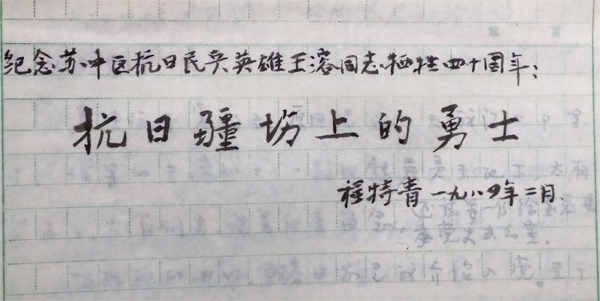 纪念苏中区抗日民兵英雄王溶同志牺牲四十周年：
抗日疆场上的勇士
程特青 一九八四年二月